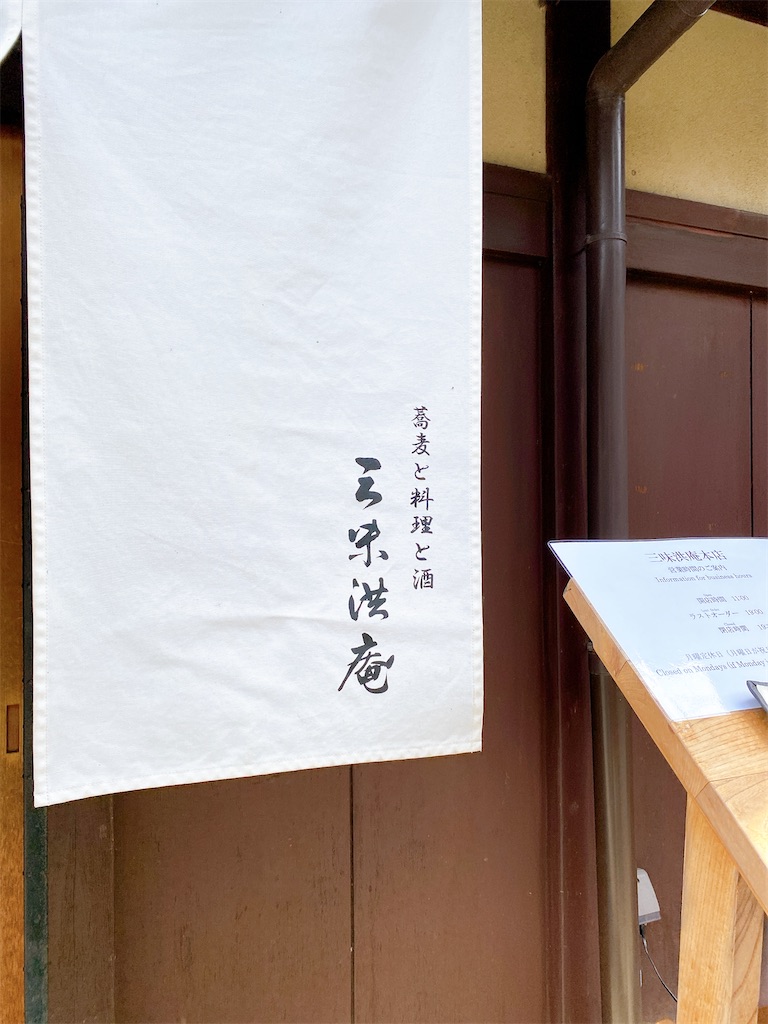 蕎麦と料理と酒
三味洪庵
三味洪庵本店
営業時間のご案内
Information for business hours
開店時間 11:00
ラストオーダー 19:00
閉店時間
月曜定休日（月曜日が祝
Closed on Mondays (if Monday